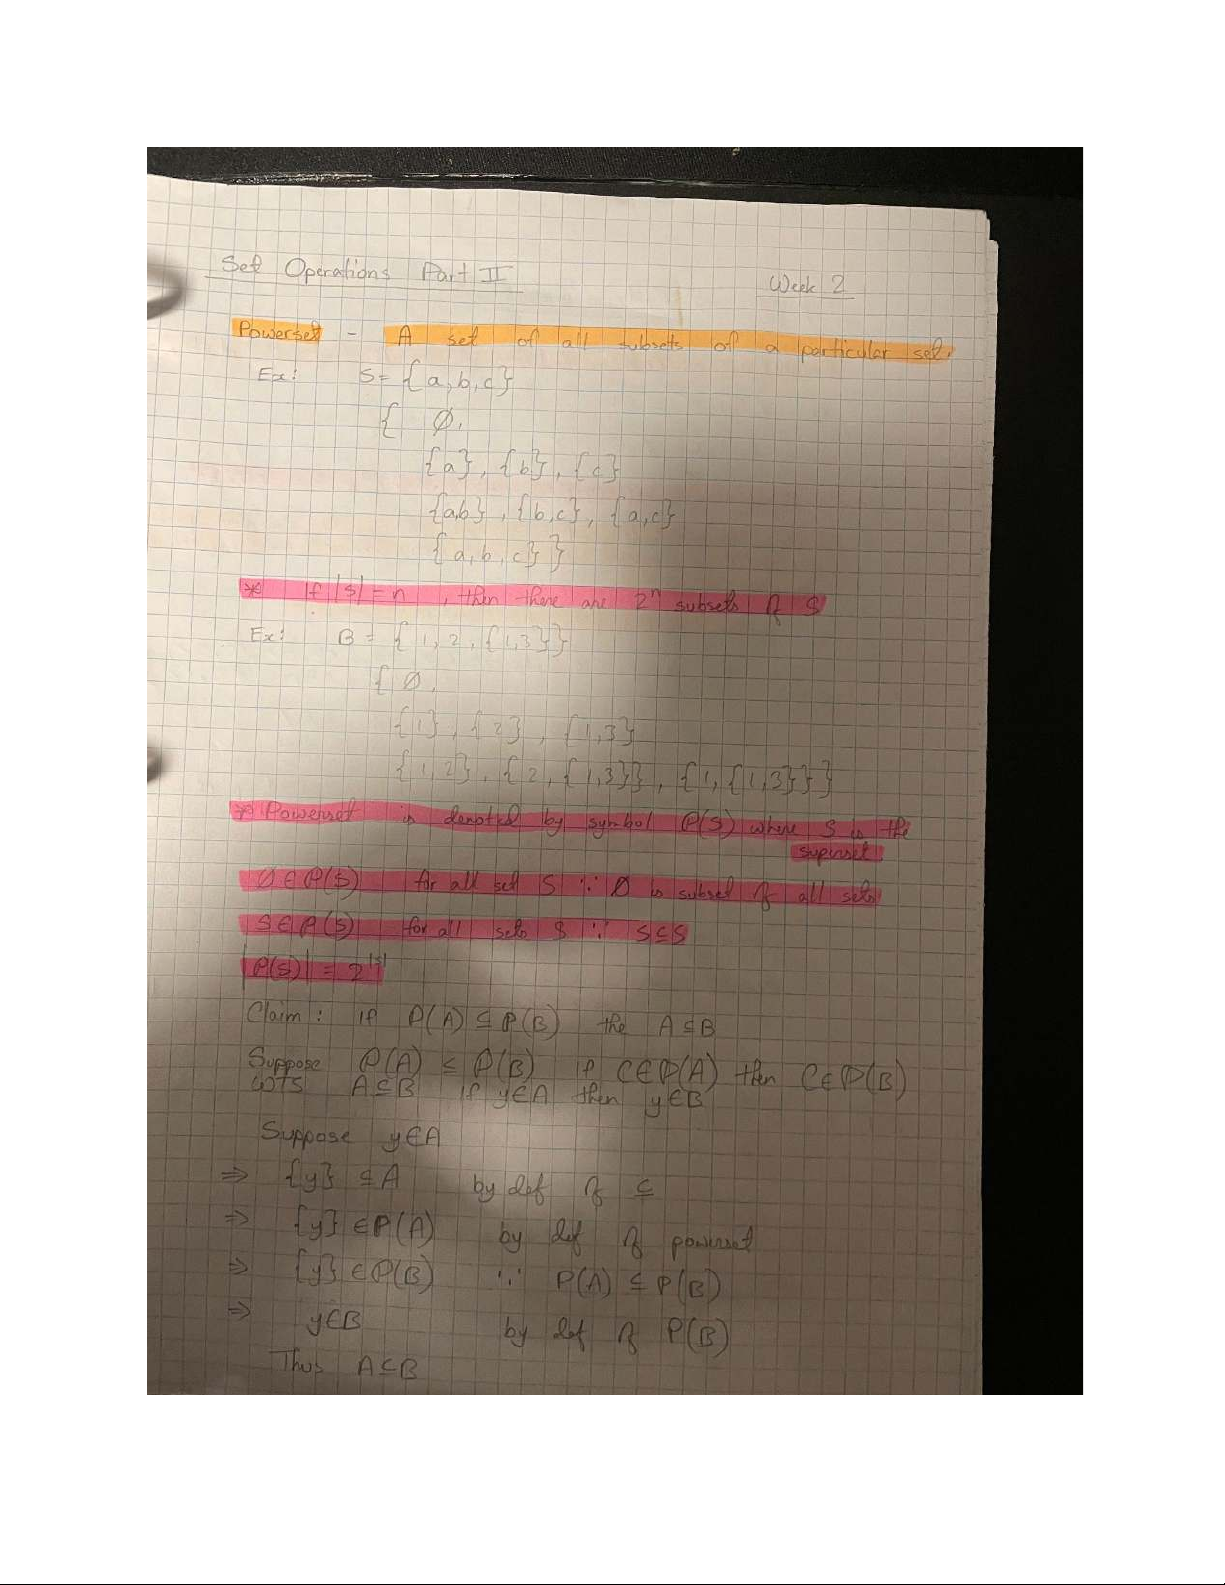 Set Operations Part II Week 2
Powerset - A set of all subsets of a particular set.
Ex: S = {a, b, c}
{ ∅,
{a}, {b}, {c}
{a,b}, {b,c}, {a,c}
{a, b, c} }
* If |S| = n, then there are 2ⁿ subsets of S
Ex: B = { 1, 2, {1,3}}
{ ∅,
{1}, {2}, {1,3}
{1,2}, {2, {1,3}}, {1, {1,3}}}
* Powerset is denoted by symbol P(S) where S is the
superset.
∅ ∈ P(S) for all set S ∵ ∅ is subset of all sets
S ∈ P(S) for all sets S ∵ S ⊆ S
|P(S)| = 2^|S|
Claim: if P(A) ⊆ P(B) the A ⊆ B
Suppose P(A) ⊆ P(B) if C ∈ P(A) then C ∈ P(B)
WTS A ⊆ B if y ∈ A then y ∈ B
Suppose y ∈ A
⇒ {y} ⊆ A by def of ⊆
⇒ {y} ∈ P(A) by def of powerset
⇒ {y} ∈ P(B) ∵ P(A) ⊆ P(B)
⇒ y ∈ B by def of P(B)
Thus A ⊆ B